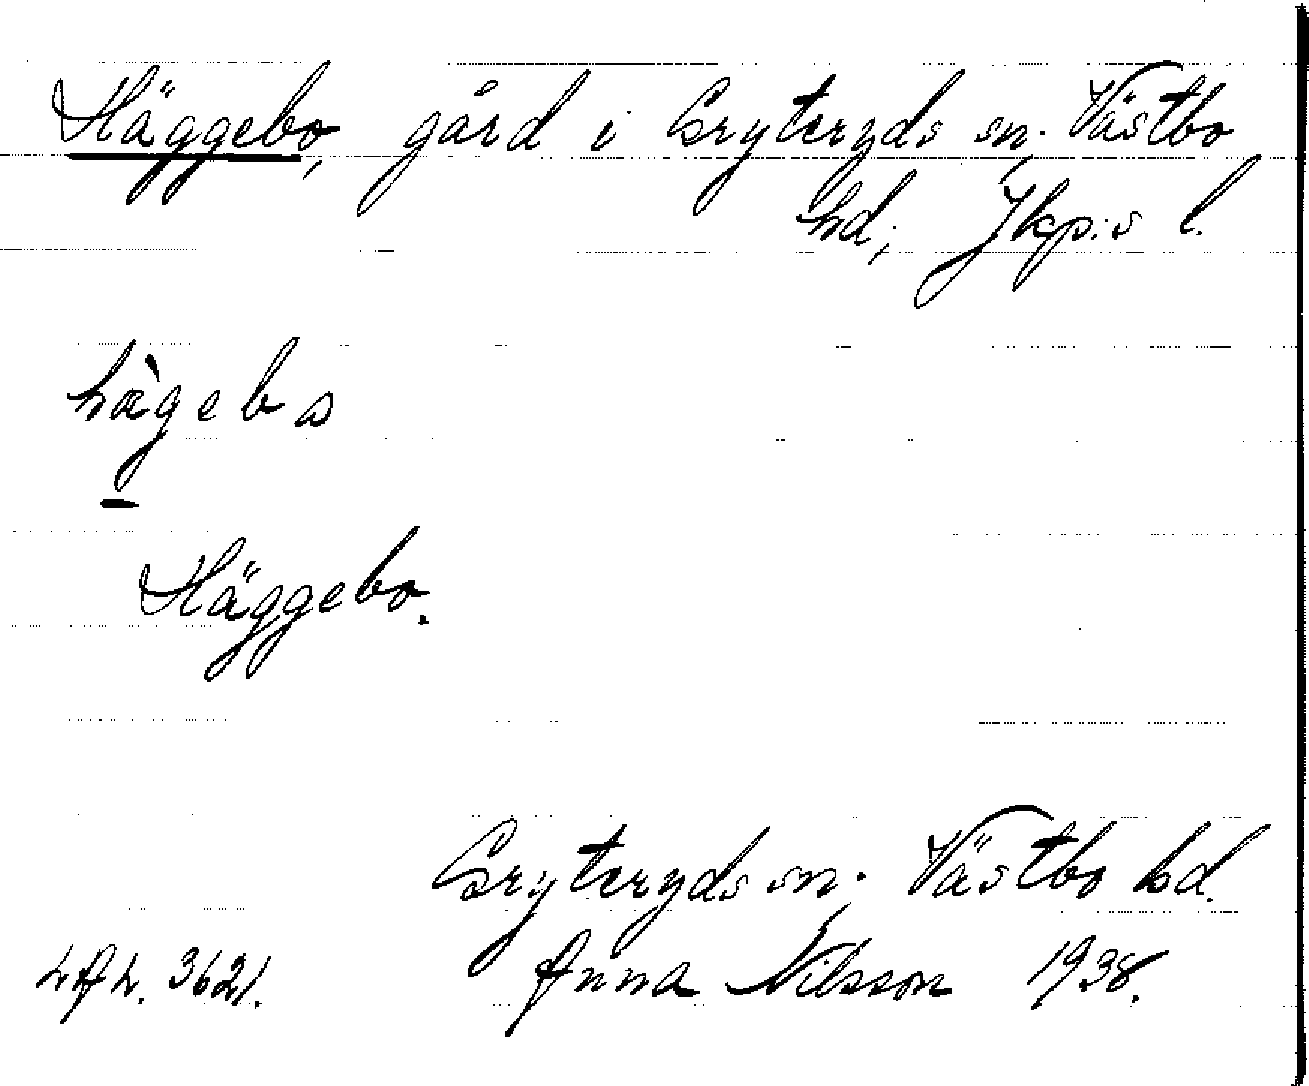 Häggebo, gård i Gryteryds sn. Västbo
hd; Jkp:s l.
hàgebo
Häggebo.
Gryteryds sn. Västbo hd.
Anna Nilsson 1938.
3621.